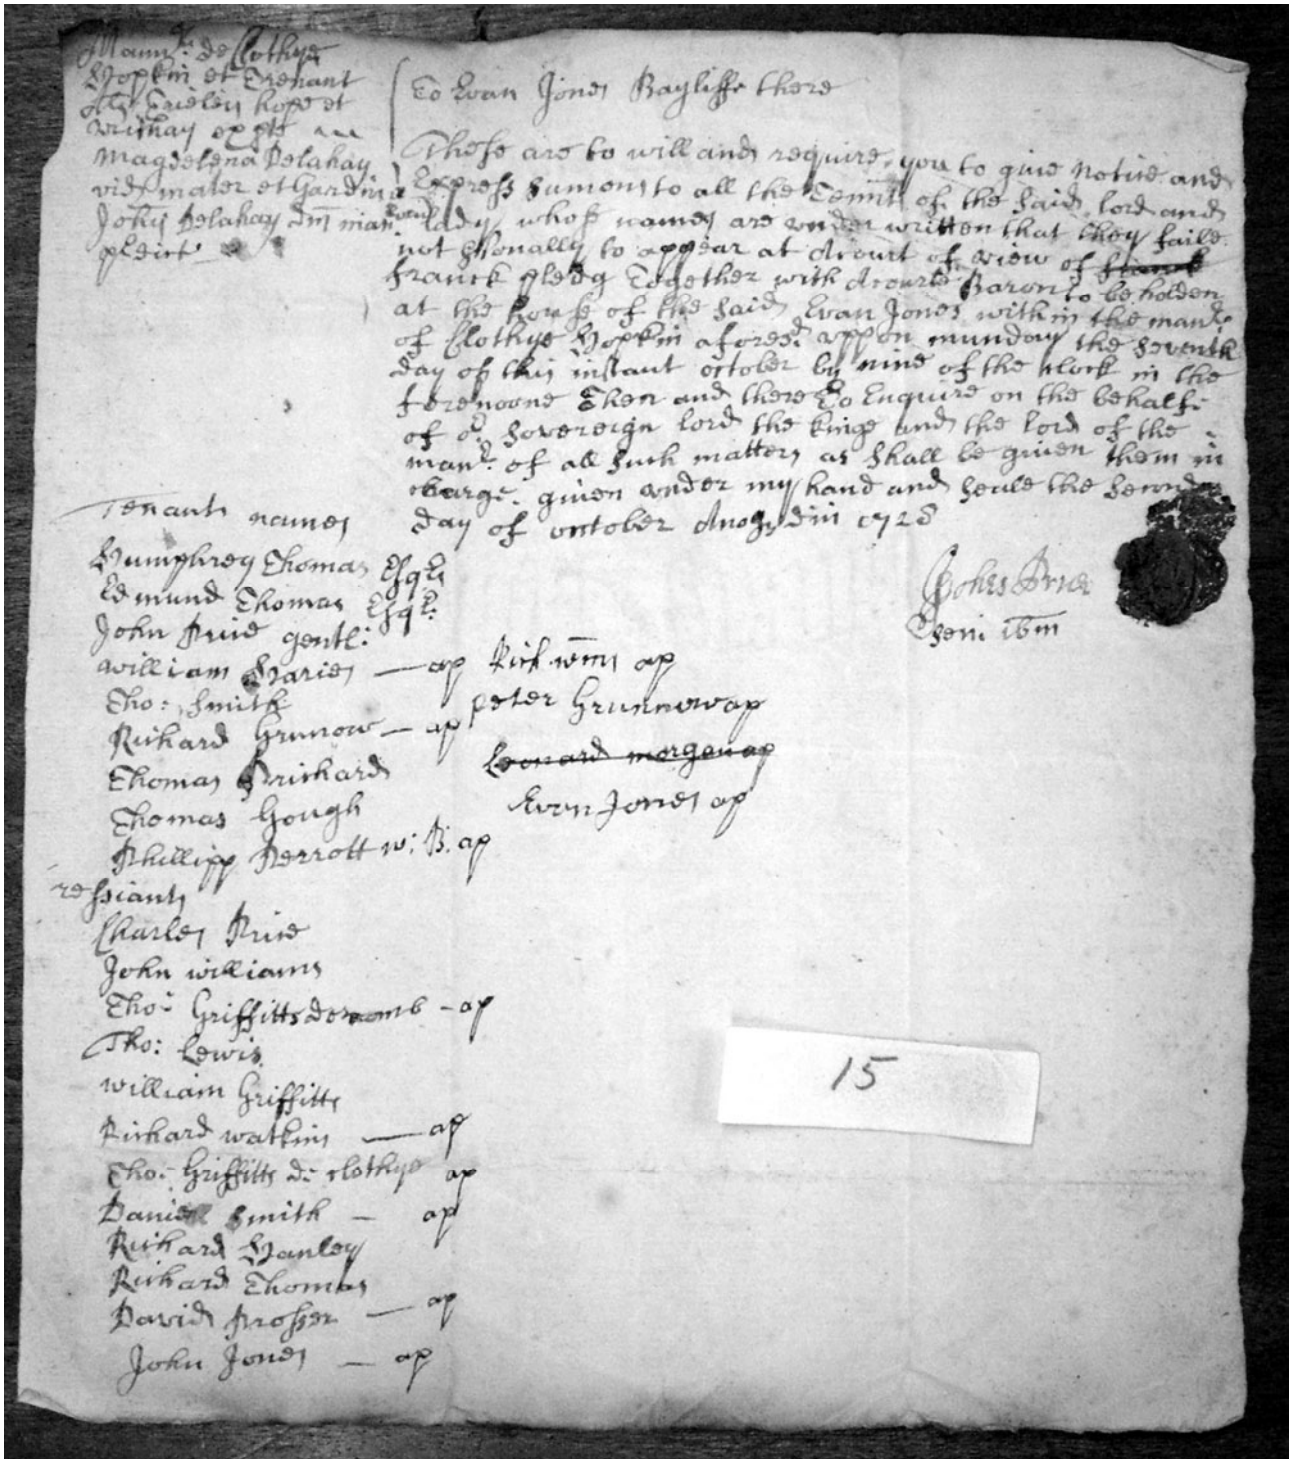 Man.r de Clothye
Hopkin et Trenant
als Trieley hope et
Wrickay ex pte
Magdelena Delahay
vid mater et Gardina
John Delahay Dm man
pledict
To Evan Jones Bayliffe there
These are to will and require you to give notice and
Express Sumons to all the Tenñts of the said lord and
lady whose names are under written that they faile
not psonally to appear at A court of view of franck
franck pledg Together with A court Baron to be holden
at the house of the said Evan Jones within the man.r
of Clothye Hopkin aforesd. uppon munday the seventh
day of this instant october by nine of the clock in the
forenoone Then and there To Enquire on the behalfe
of or. Sovereign lord the kinge and the lord of the
man.r of all such matters as shall be given them in
charge. given under my hand and seale the second
day of october Anoq Dm 1728
John Price
Sen: ibm
Tenants names
Humphrey Thomas Esqr.
Edmund Thomas Esqr.
John Price gentl:
William Haries — ap Rich. wms ap
Tho: Smith Peter Grunnow ap
Richard Grunow — ap
Thomas Prichard Leonard morgan ap
Thomas Gough Evan Jones ap
Phillipp Perrott w: B: ap
ressiants
Charles Price
John williams
Tho: Griffitts de comb - ap
Tho: Lewis
William Griffitts
Richard watkins — ap
Tho: Griffitts de clothye ap
Daniell Smith — ap
Richard Hanley
Richard Thomas
David Prosser — ap
John Jones — ap
15